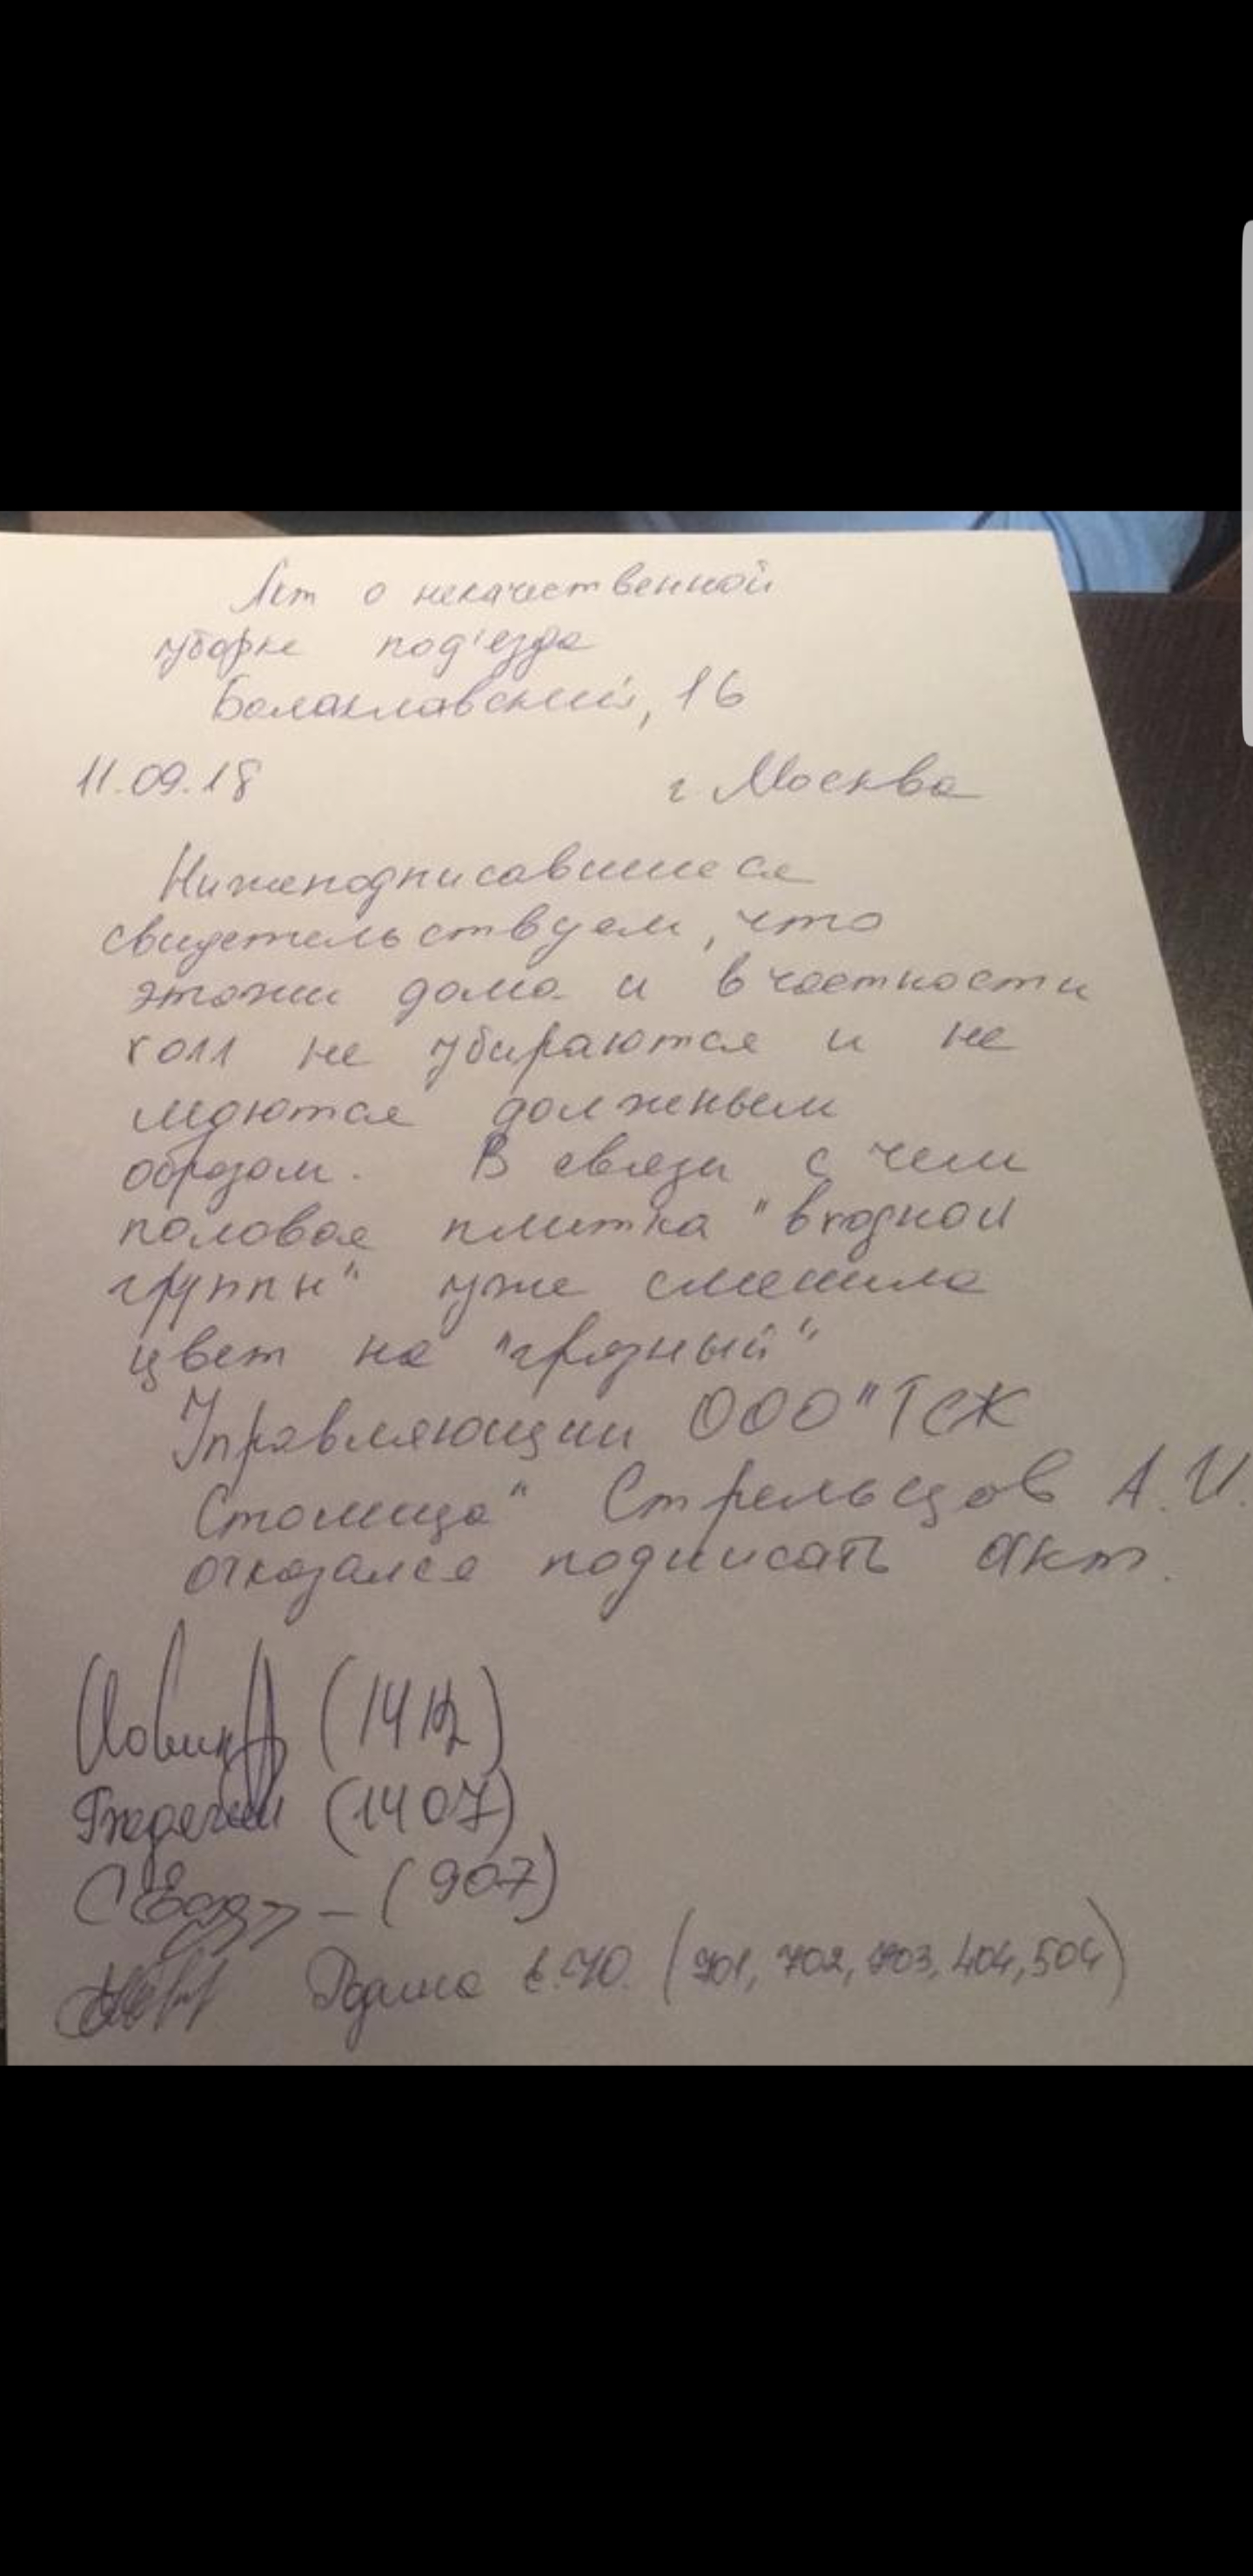 Акт о некачественной
уборке под'езда
Балаклавский, 16
11.09.18 г Москва
Нижеподписавшиеся
свидетельствуем, что
этажи дома и в частности
холл не убираются и не
моются должным
образом. В связи с чем
половая плитка "входной
группы" уже сменила
цвет на "грязный"
Управляющий ООО "ТСЖ
Столица" Стрельцов А.И.
отказался подписать акт.
(1412)
(1407)
(907)
(901, 702, 903, 404, 504)